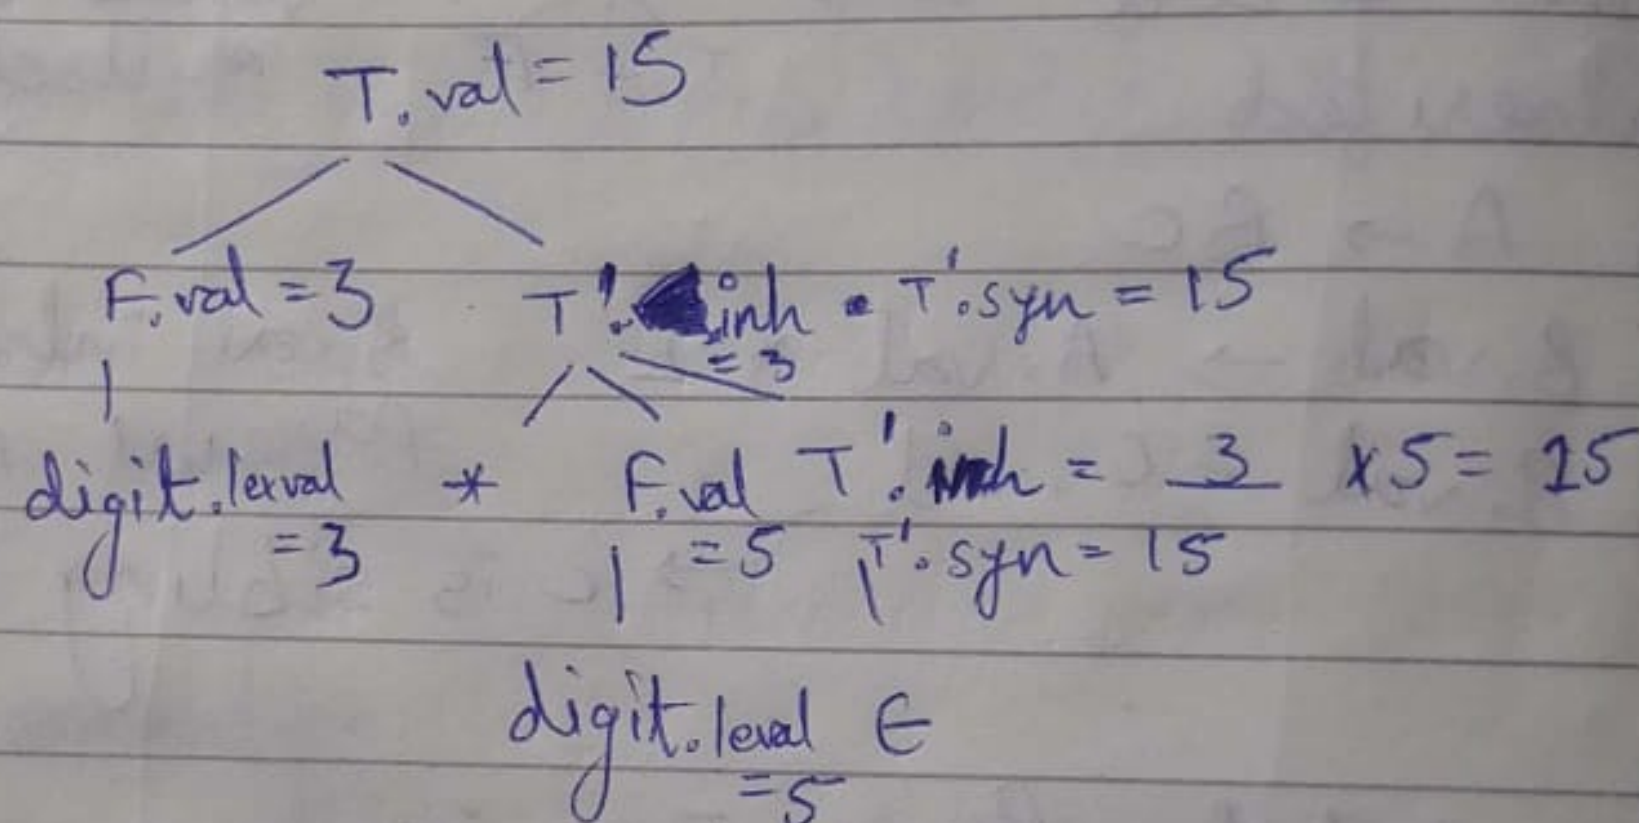 T.val = 15
F.val = 3 T'.inh = 3 T'.syn = 15
digit.lexval = 3 * F.val = 5 T'.inh = 3 x 5 = 15
T'.syn = 15
digit.lexval = 5 ϵ